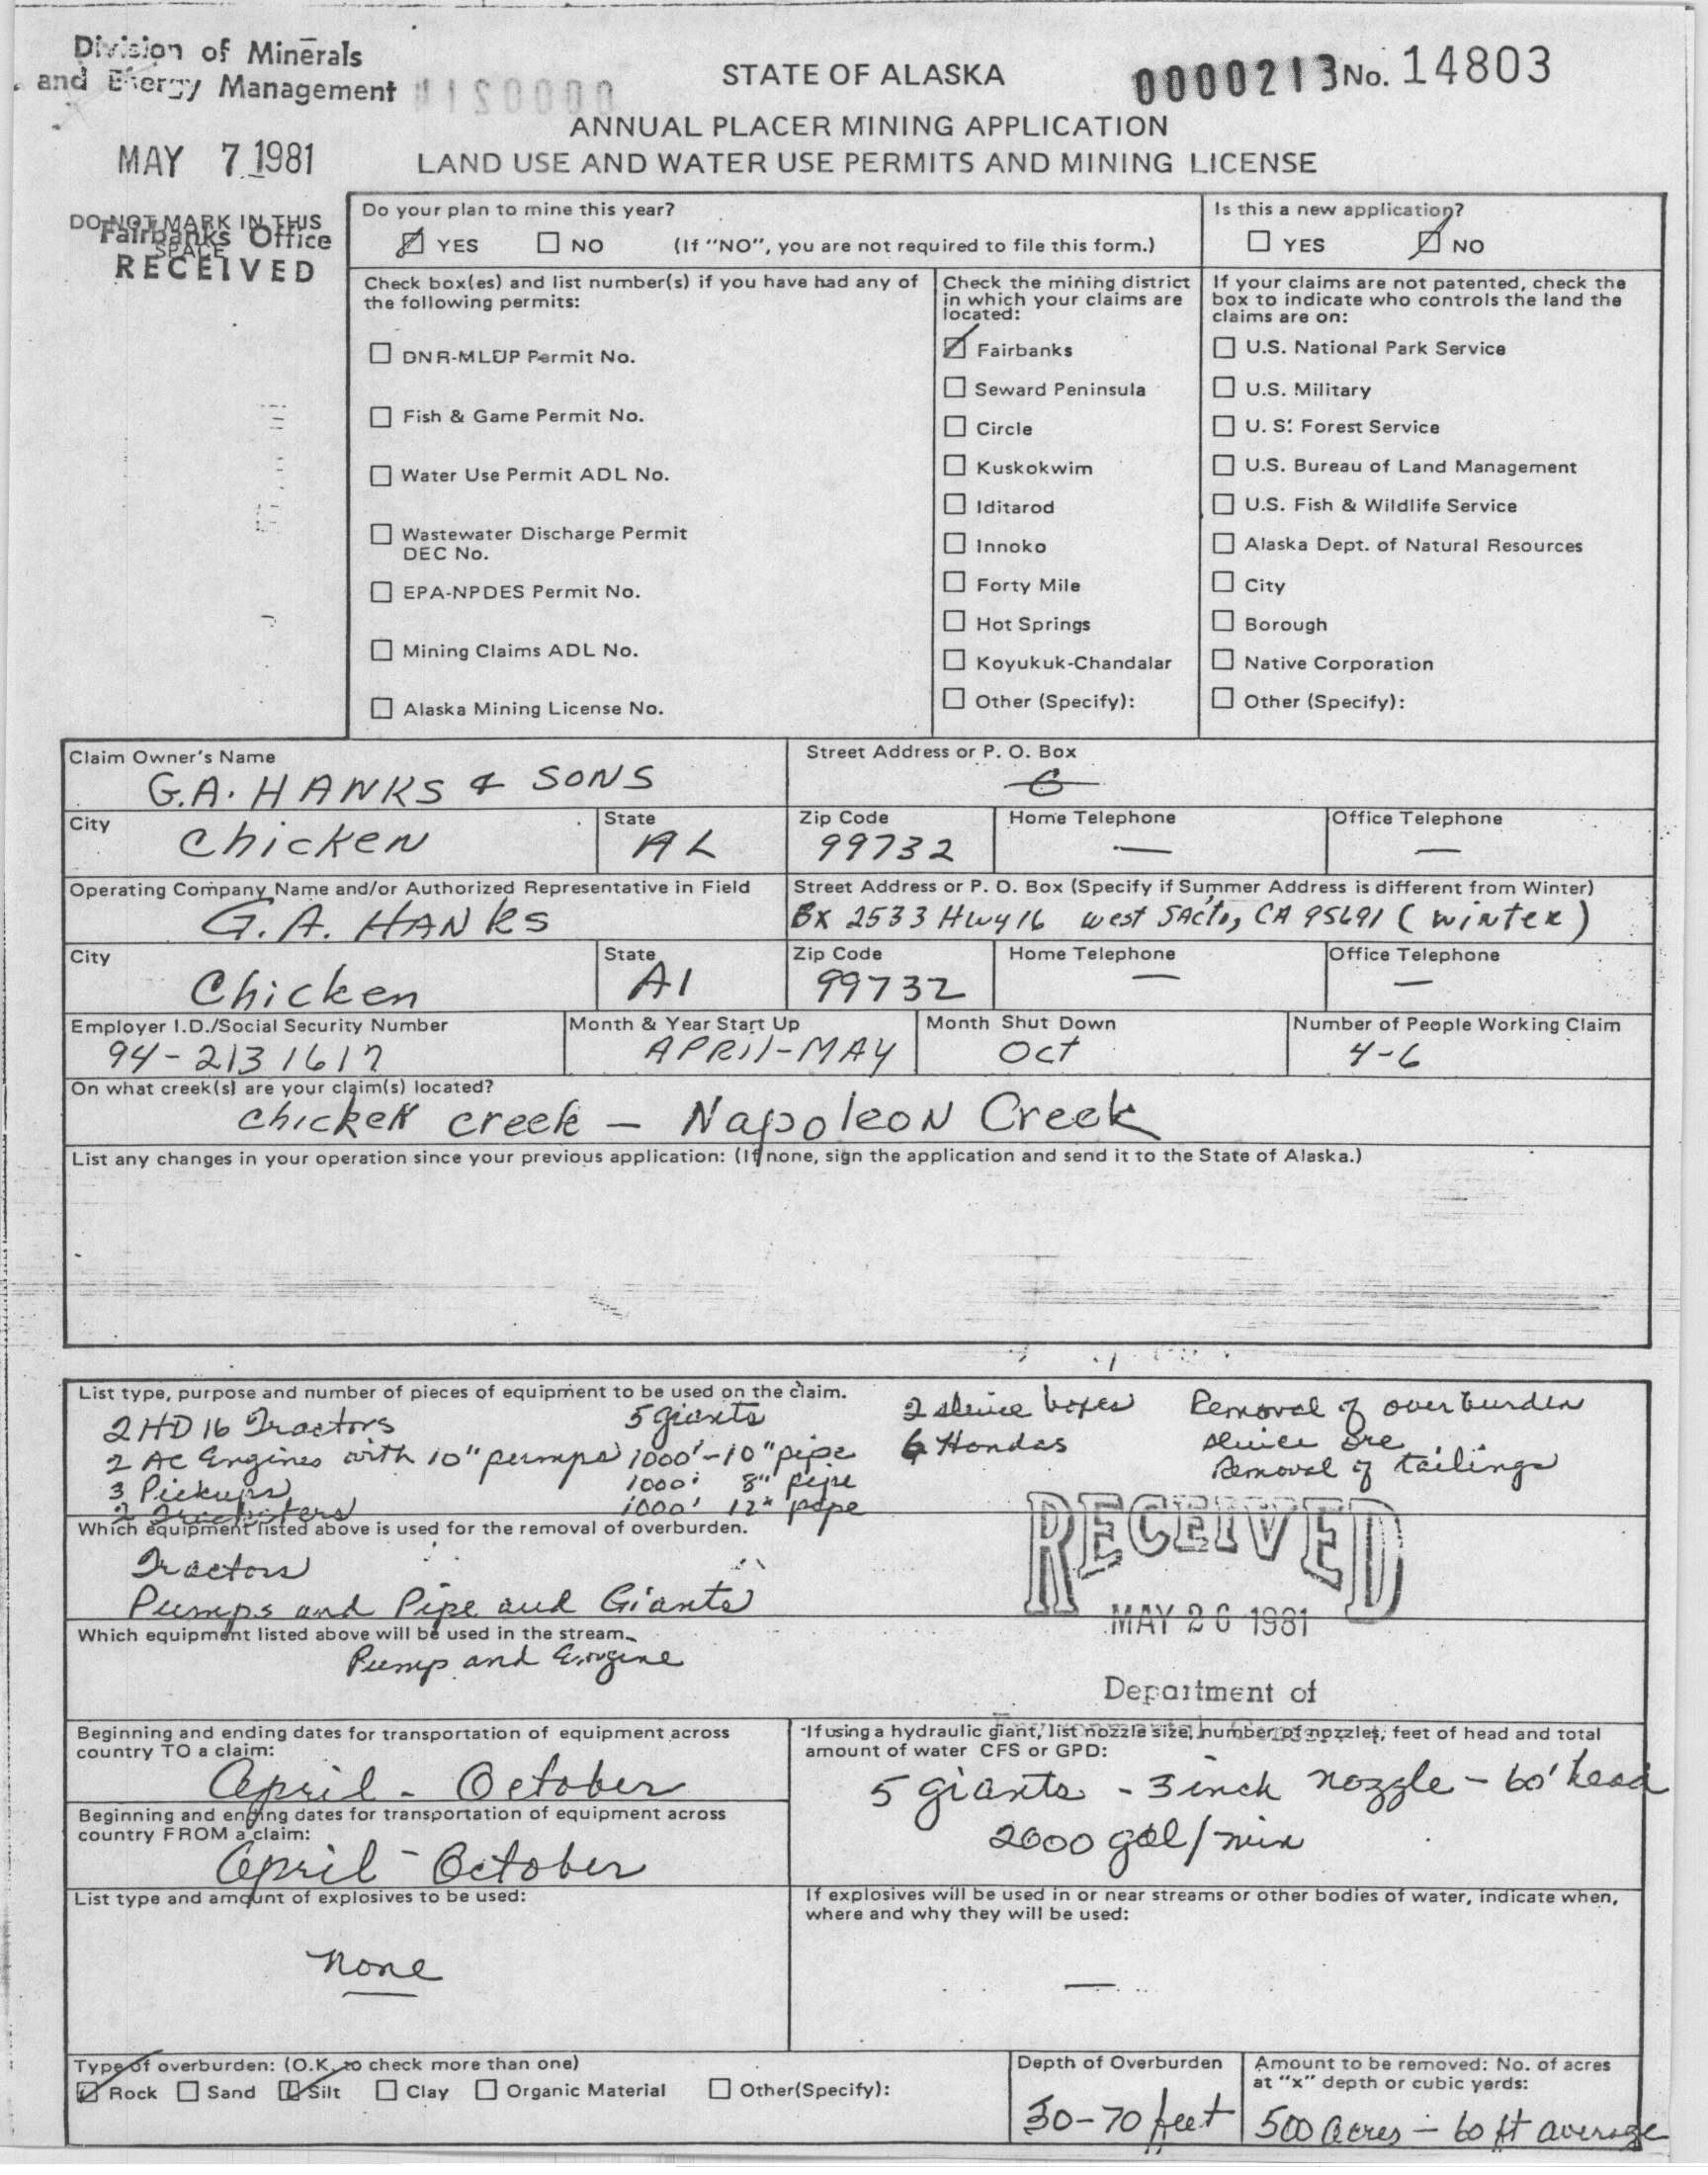 Division of Minerals
and Energy Management
STATE OF ALASKA
0000213 No. 14803
ANNUAL PLACER MINING APPLICATION
MAY 7 1981
LAND USE AND WATER USE PERMITS AND MINING LICENSE
DO NOT MARK IN THIS
SPACE
Fairbanks Office
RECEIVED
Do your plan to mine this year?
YES NO (If "NO", you are not required to file this form.)
Is this a new application?
YES NO
Check box(es) and list number(s) if you have had any of
the following permits:
DNR-MLUP Permit No.
Fish & Game Permit No.
Water Use Permit ADL No.
Wastewater Discharge Permit
DEC No.
EPA-NPDES Permit No.
Mining Claims ADL No.
Alaska Mining License No.
Check the mining district
in which your claims are
located:
Fairbanks
Seward Peninsula
Circle
Kuskokwim
Iditarod
Innoko
Forty Mile
Hot Springs
Koyukuk-Chandalar
Other (Specify):
If your claims are not patented, check the
box to indicate who controls the land the
claims are on:
U.S. National Park Service
U.S. Military
U. S. Forest Service
U.S. Bureau of Land Management
U.S. Fish & Wildlife Service
Alaska Dept. of Natural Resources
City
Borough
Native Corporation
Other (Specify):
Claim Owner's Name
G.A. HANKS & SONS
Street Address or P. O. Box
City
Chicken
State
AL
Zip Code
99732
Home Telephone
—
Office Telephone
—
Operating Company Name and/or Authorized Representative in Field
G. A. HANKS
Street Address or P. O. Box (Specify if Summer Address is different from Winter)
Bx 2533 Hwy 16 west SActo, CA 95691 (winter)
City
Chicken
State
Al
Zip Code
99732
Home Telephone
—
Office Telephone
—
Employer I.D./Social Security Number
94-2131617
Month & Year Start Up
APRil-MAY
Month Shut Down
Oct
Number of People Working Claim
4-6
On what creek(s) are your claim(s) located?
Chicken creek — Napoleon Creek
List any changes in your operation since your previous application: (If none, sign the application and send it to the State of Alaska.)
List type, purpose and number of pieces of equipment to be used on the claim.
2 HD 16 Tractors 5 giants 2 sluice boxes Removal of overburden
2 AC Engines with 10" pumps 1000'-10" pipe 6 Hondas sluice ore
3 Pickups 1000' 8" pipe Removal of tailings
1000' 12" pipe
Which equipment listed above is used for the removal of overburden.
Tractors
Pumps and Pipe and Giants
RECEIVED
MAY 26 1981
Department of
Which equipment listed above will be used in the stream.
Pump and Engine
Beginning and ending dates for transportation of equipment across
country TO a claim:
April - October
Beginning and ending dates for transportation of equipment across
country FROM a claim:
April - October
If using a hydraulic giant, list nozzle size, number of nozzles, feet of head and total
amount of water CFS or GPD:
5 giants - 3 inch nozzle - 60' head
2000 gal/min
List type and amount of explosives to be used:
none
If explosives will be used in or near streams or other bodies of water, indicate when,
where and why they will be used:
—
Type of overburden: (O.K. to check more than one)
Rock Sand Silt Clay Organic Material Other(Specify):
Depth of Overburden
50-70 feet
Amount to be removed: No. of acres
at "x" depth or cubic yards:
500 Acres - 60 ft average